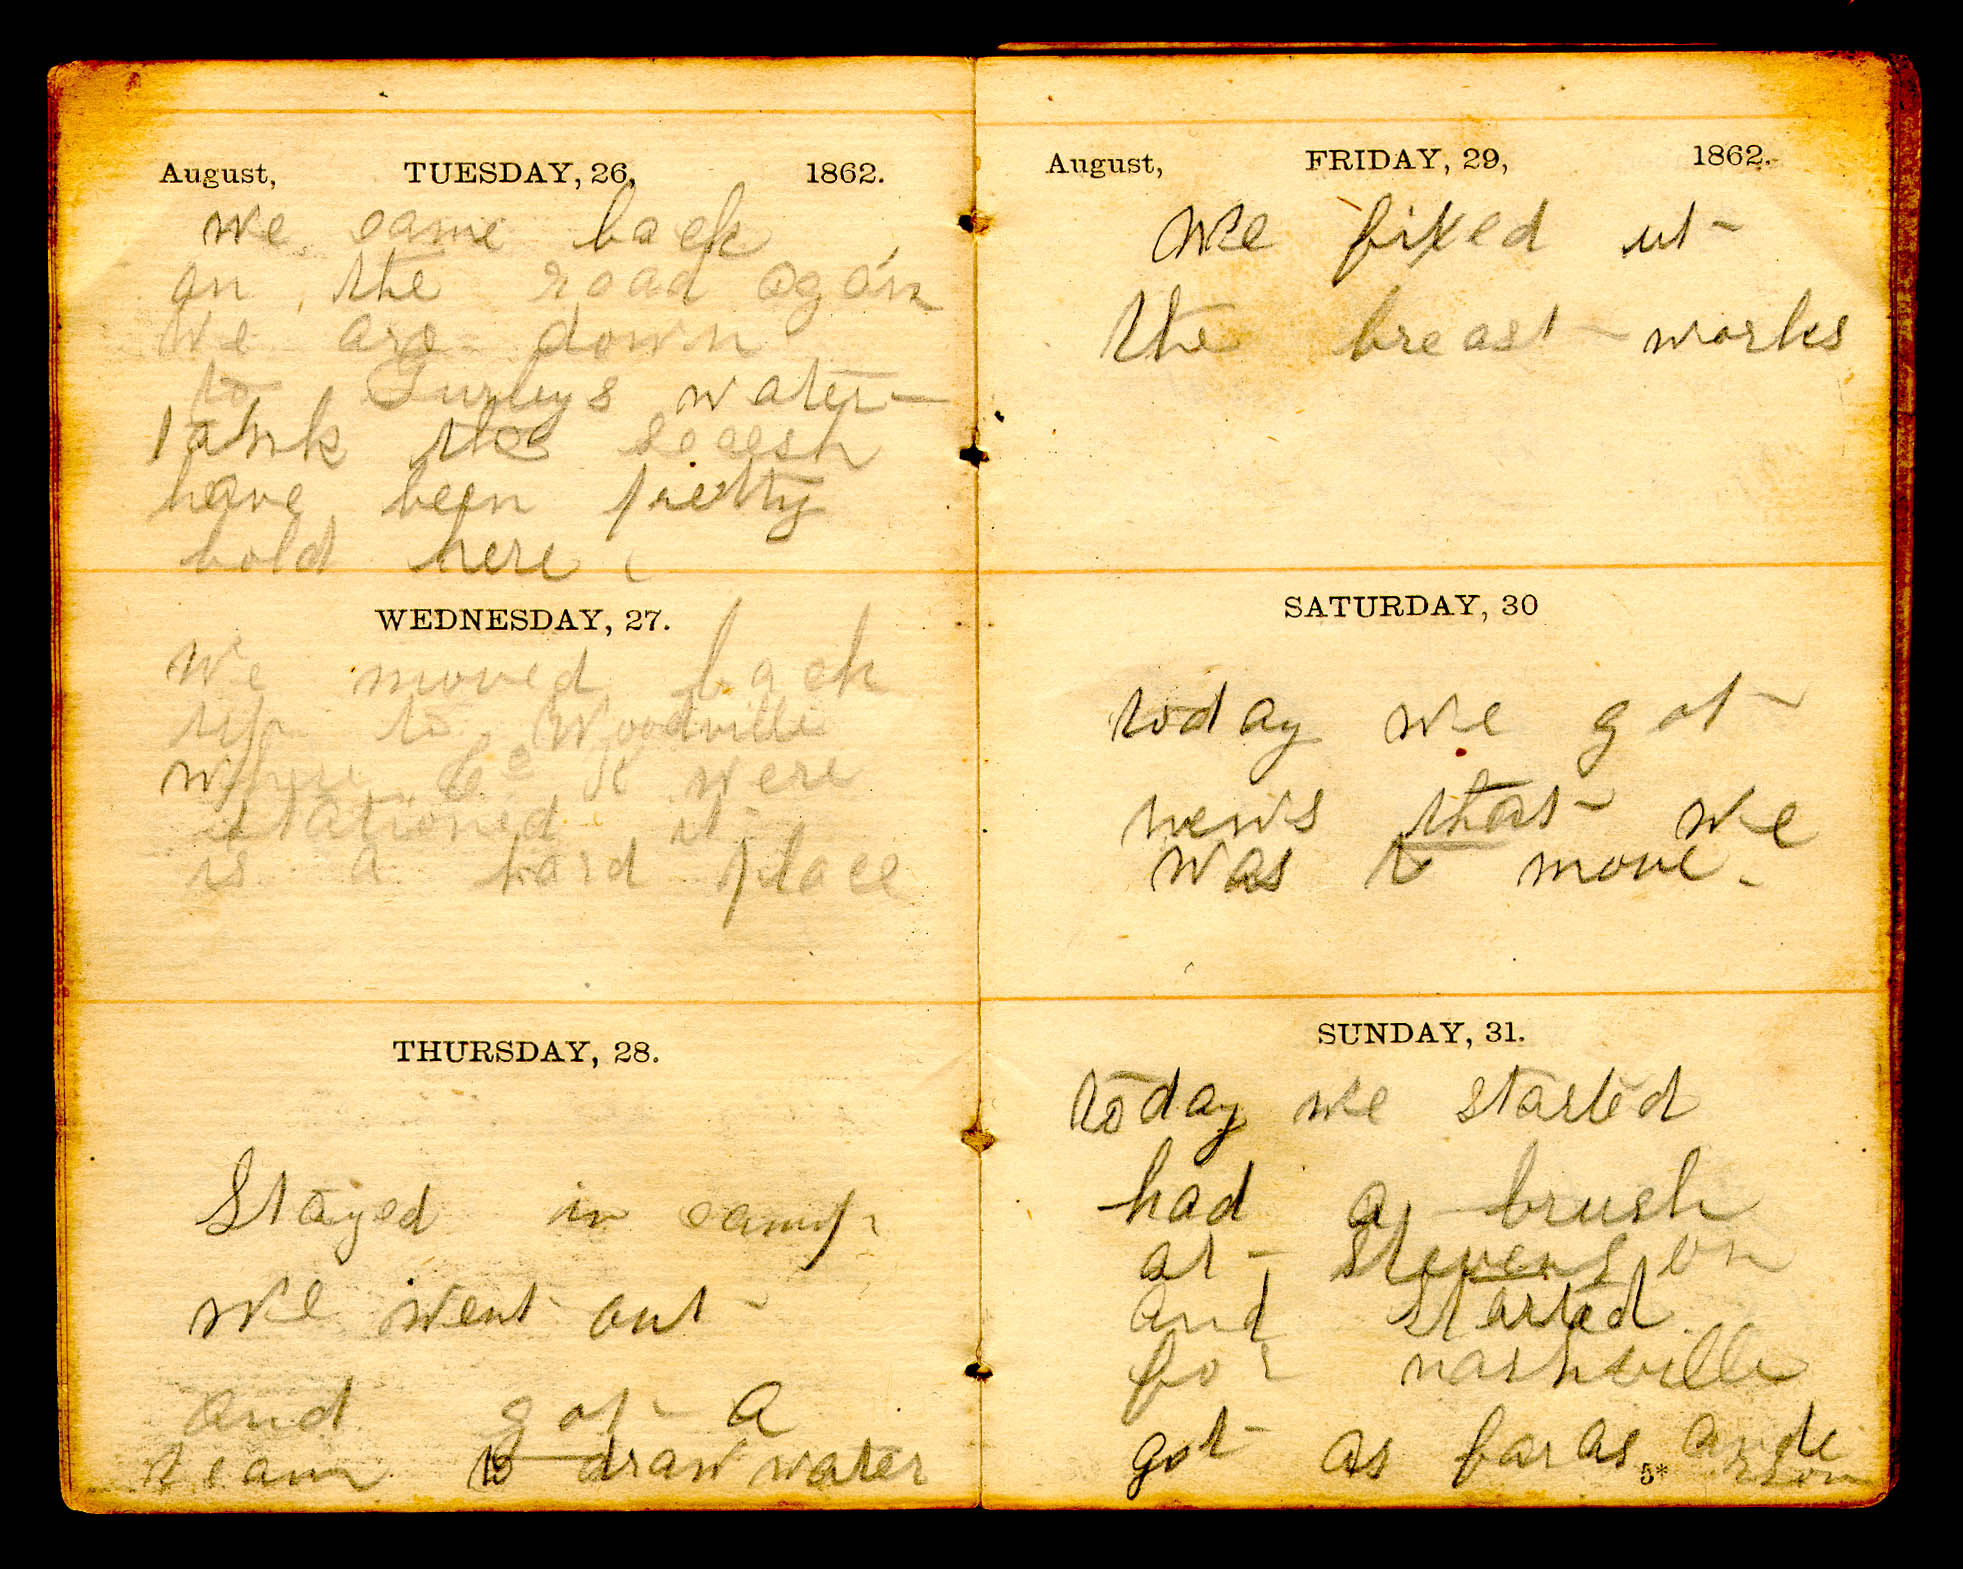 August, TUESDAY, 26, 1862.
We came back
on the road again
We are down
to Gurleys water
tank the secesh
have been pretty
bold here
WEDNESDAY, 27.
We moved back
up to Woodville
where Co K were
stationed it
is a hard place
THURSDAY, 28.
Stayed in camp
we went out
and got a
team to draw water
August, FRIDAY, 29, 1862.
We fixed at
the breast works
SATURDAY, 30
today we got
news that we
was to move
SUNDAY, 31.
today we started
had a brush
at Stevenson
and started
for nashville
got as far as ande
rson
5*